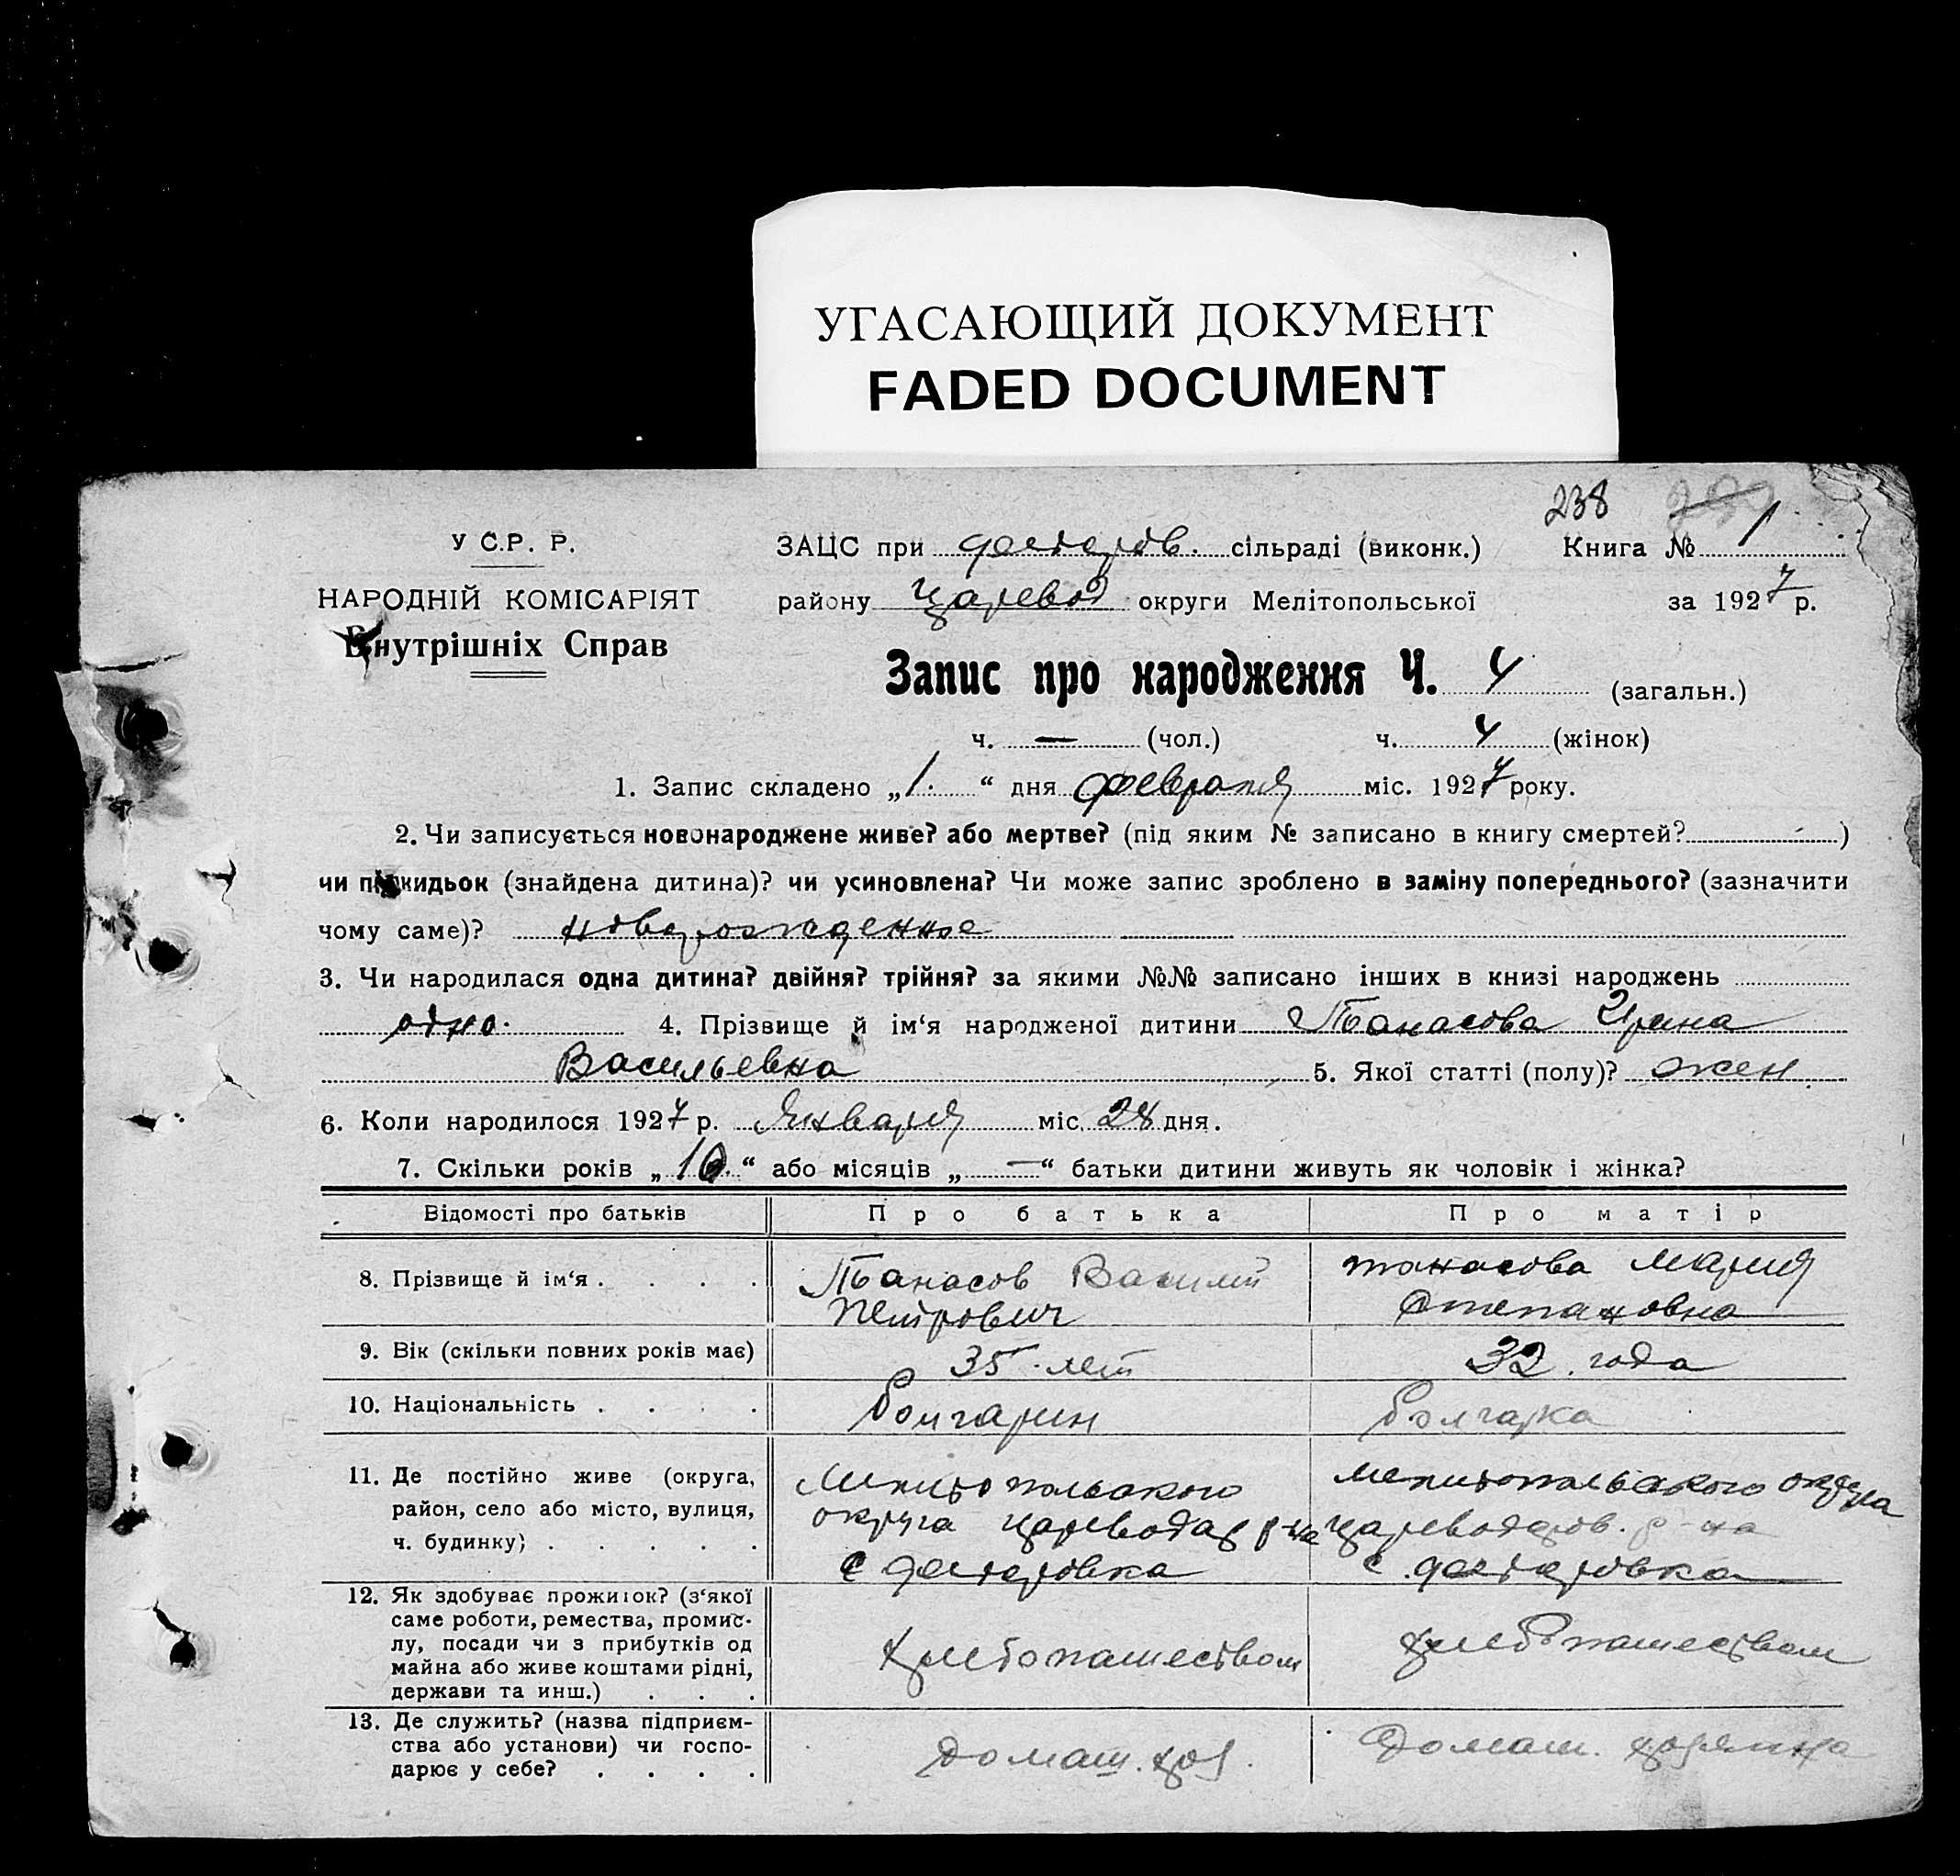 УГАСАЮЩИЙ ДОКУМЕНТ
FADED DOCUMENT
238
У С.Р. Р.
ЗАЦС при сільраді (виконк.) Книга № 1
НАРОДНІЙ КОМІСАРІЯТ
району Царевод округи Мелітопольської за 1927 р.
Внутрішніх Справ
Запис про народження Ч. 4 (загальн.)
ч. — (чол.) ч. 4 (жінок)
1. Запис складено „1.“ дня февраля міс. 1927 року.
2. Чи записується новонароджене живе? або мертве? (під яким № записано в книгу смертей? )
чи підкидьок (знайдена дитина)? чи усиновлена? Чи може запис зроблено в заміну попереднього? (зазначити
чому саме)? новорожденное
3. Чи народилася одна дитина? двійня? трійня? за якими №№ записано інших в книзі народжень
одно. 4. Прізвище й ім‘я народженої дитини Танасова Ирина
Васильевна 5. Якої статті (полу)? жен.
6. Коли народилося 1927 р. Января міс. 28 дня.
7. Скільки років „10.“ або місяців „—“ батьки дитини живуть як чоловік і жінка?
Відомості про батьків Про батька Про матір
8. Прізвище й ім‘я . . . . Танасов Василий танасова Мария
Петрович Степановна
9. Вік (скільки повних років має) 35 лет 32. года
10. Національність . . . . болгарин болгарка
11. Де постійно живе (округа, Мелитопольского мелитопольского округа
район, село або місто, вулиця, округа Цареводар р-на Цареводаров. р-на
ч. будинку) . . . . . с с.
12. Як здобуває прожиток? (з‘якої
саме роботи, ремества, промис-
лу, посади чи з прибутків од хлебопашеством хлебопашеством
майна або живе коштами рідні,
держави та инш.) . . .
13. Де служить? (назва підприєм-
ства або установи) чи госпо- домаш. хоз. Домаш.
дарює у себе? . . . .